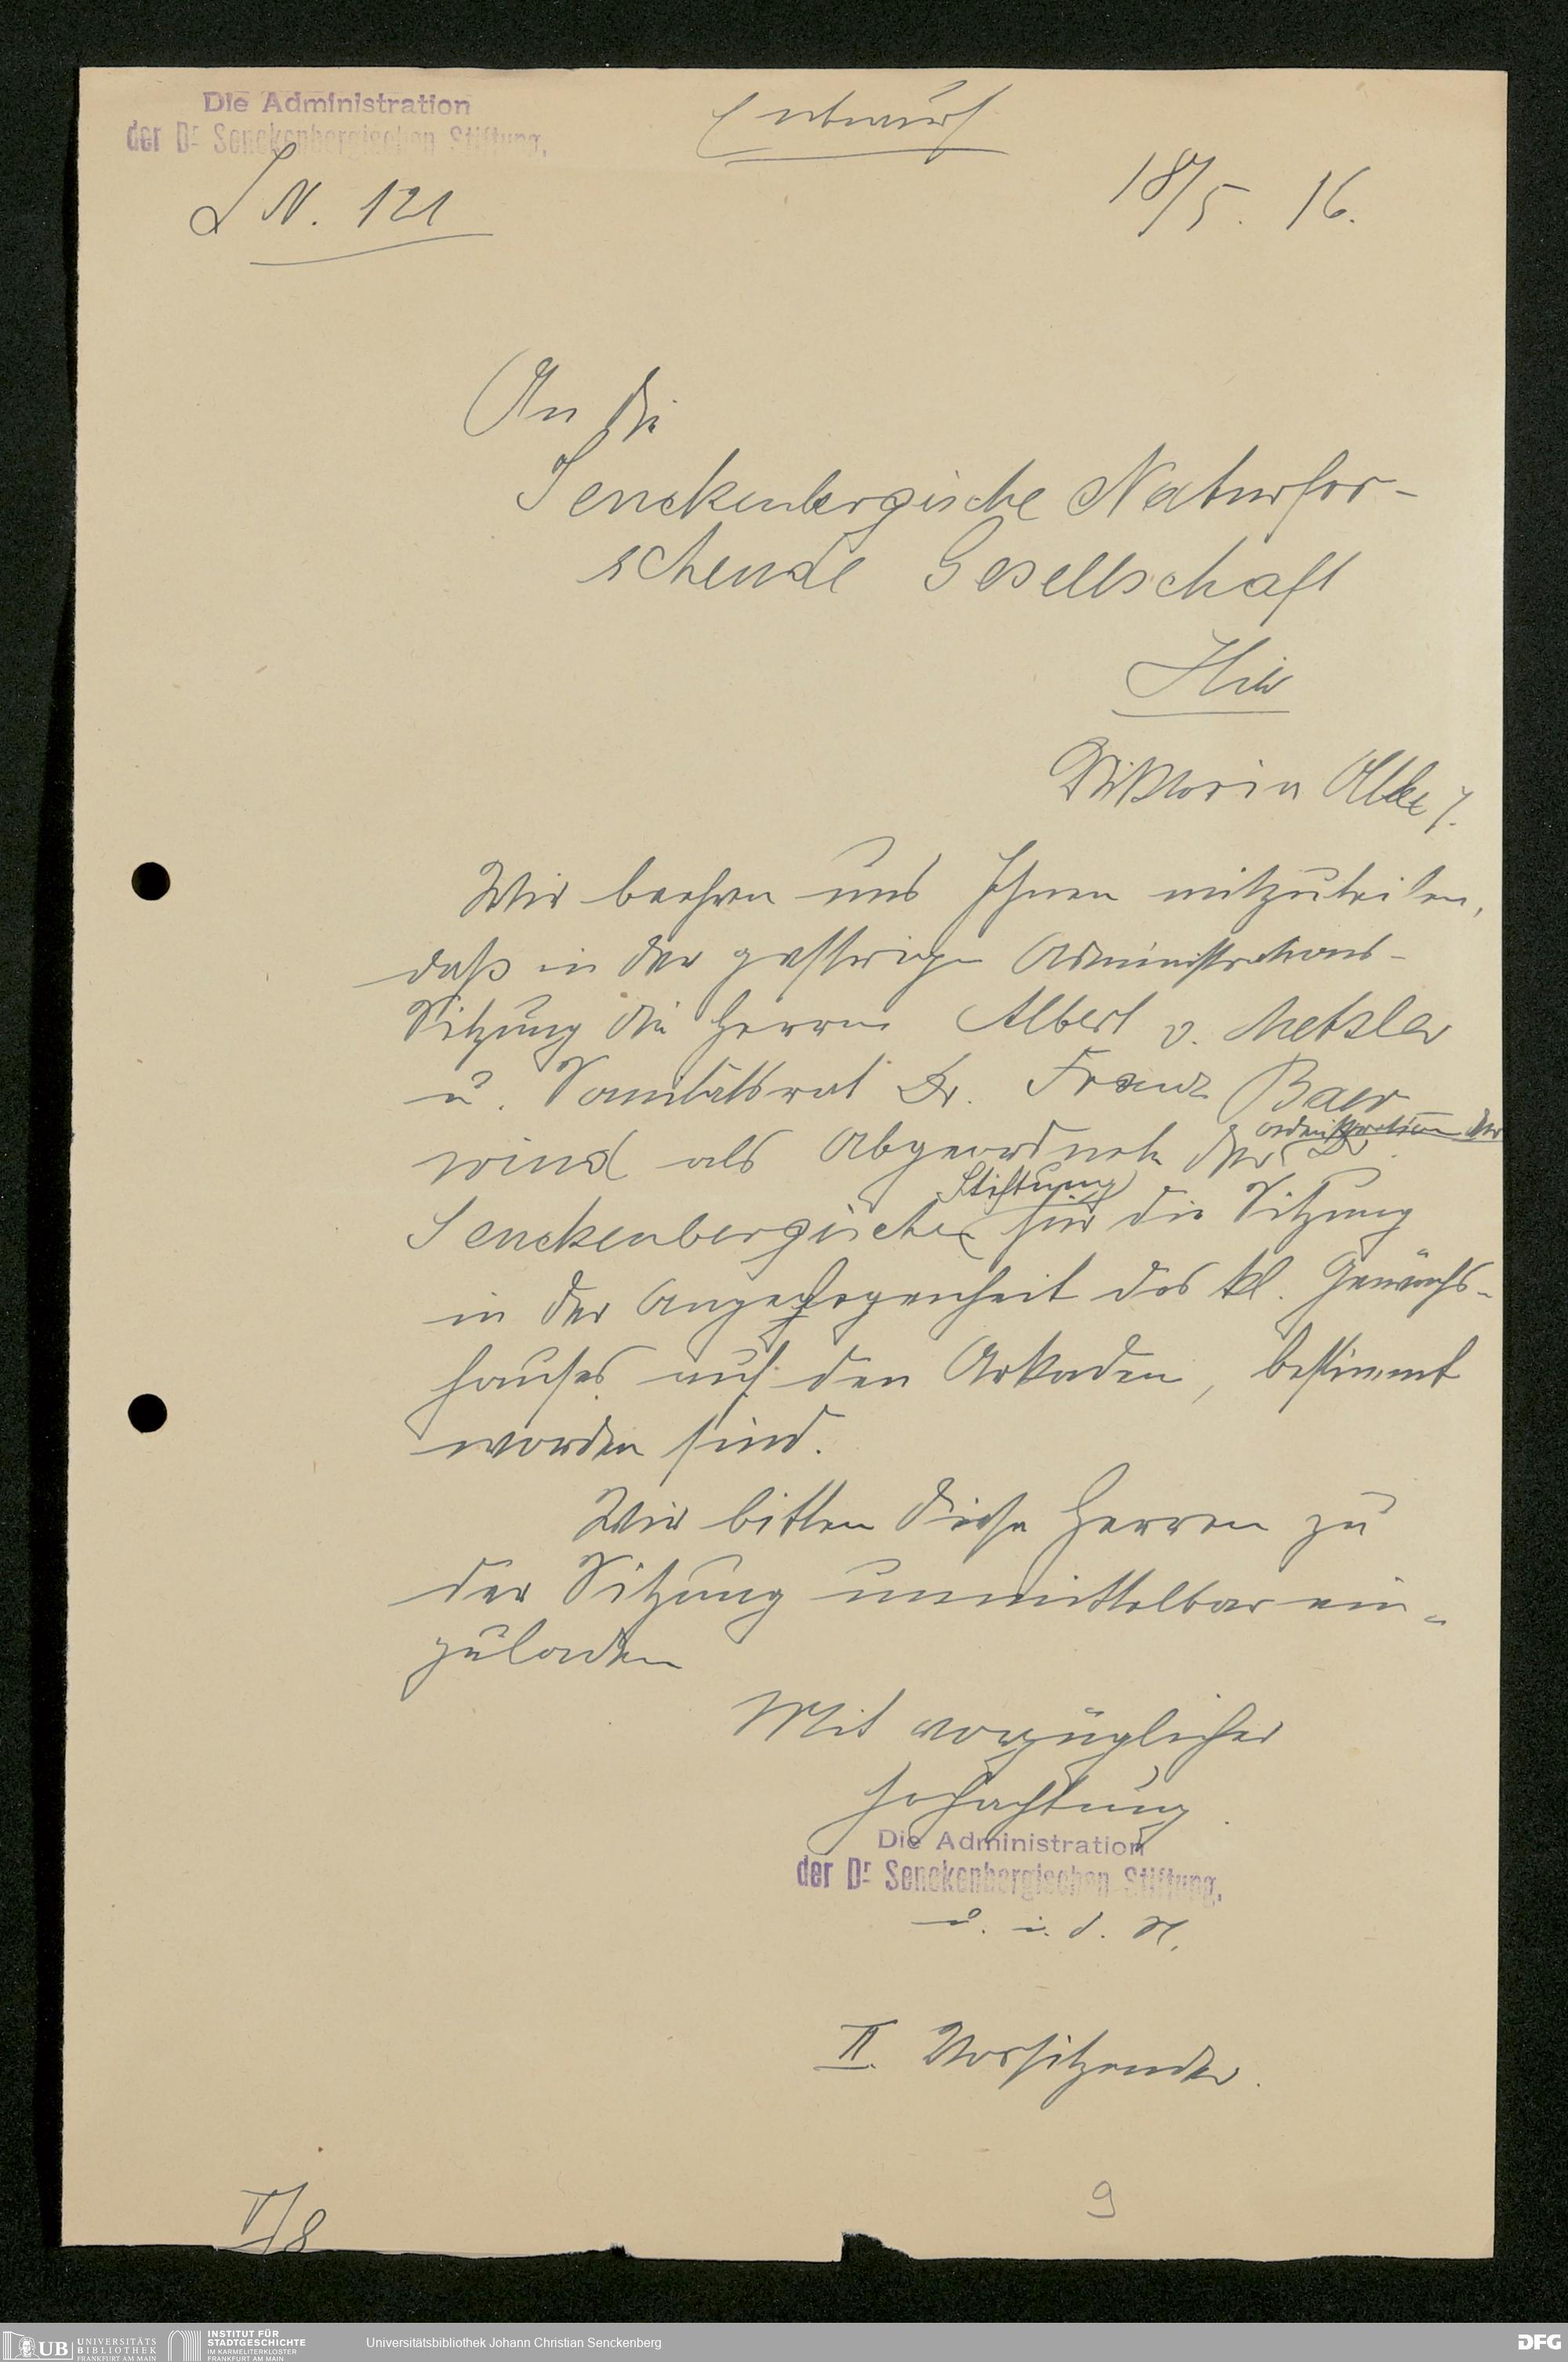 Die Administration
der Dr. Senckenbergischen Stiftung.
Entwurf
J N. 121
18/5. 16.
An die
Senckenbergische Naturfor-
schende Gesellschaft
Hier
Viktoria Allee 7.
Wir beehren uns Ihnen mitzuteilen,
daß in der gestrigen Administrations-
Sitzung die Herren Albert v. Metzler
u. Sanitätsrat Dr. Franz Baer
wind als Abgeordnete der Administration der Dr.
Senckenbergischen Stiftung für die Sitzung
in der Angelegenheit des kl. Gewächs-
hauses auf den Arkaden, bestimmt
worden sind.
Wir bitten diese Herren zu
der Sitzung unmittelbar ein-
zuladen
Mit vorzüglicher
Hochachtung.
Die Administration
der Dr. Senckenbergischen Stiftung.
u. i. d. N.
II. Vorsitzender.
9
V/8
UB UNIVERSITÄTS
BIBLIOTHEK
FRANKFURT AM MAIN
INSTITUT FÜR
STADTGESCHICHTE
IM KARMELITERKLOSTER
FRANKFURT AM MAIN
Universitätsbibliothek Johann Christian Senckenberg
DFG